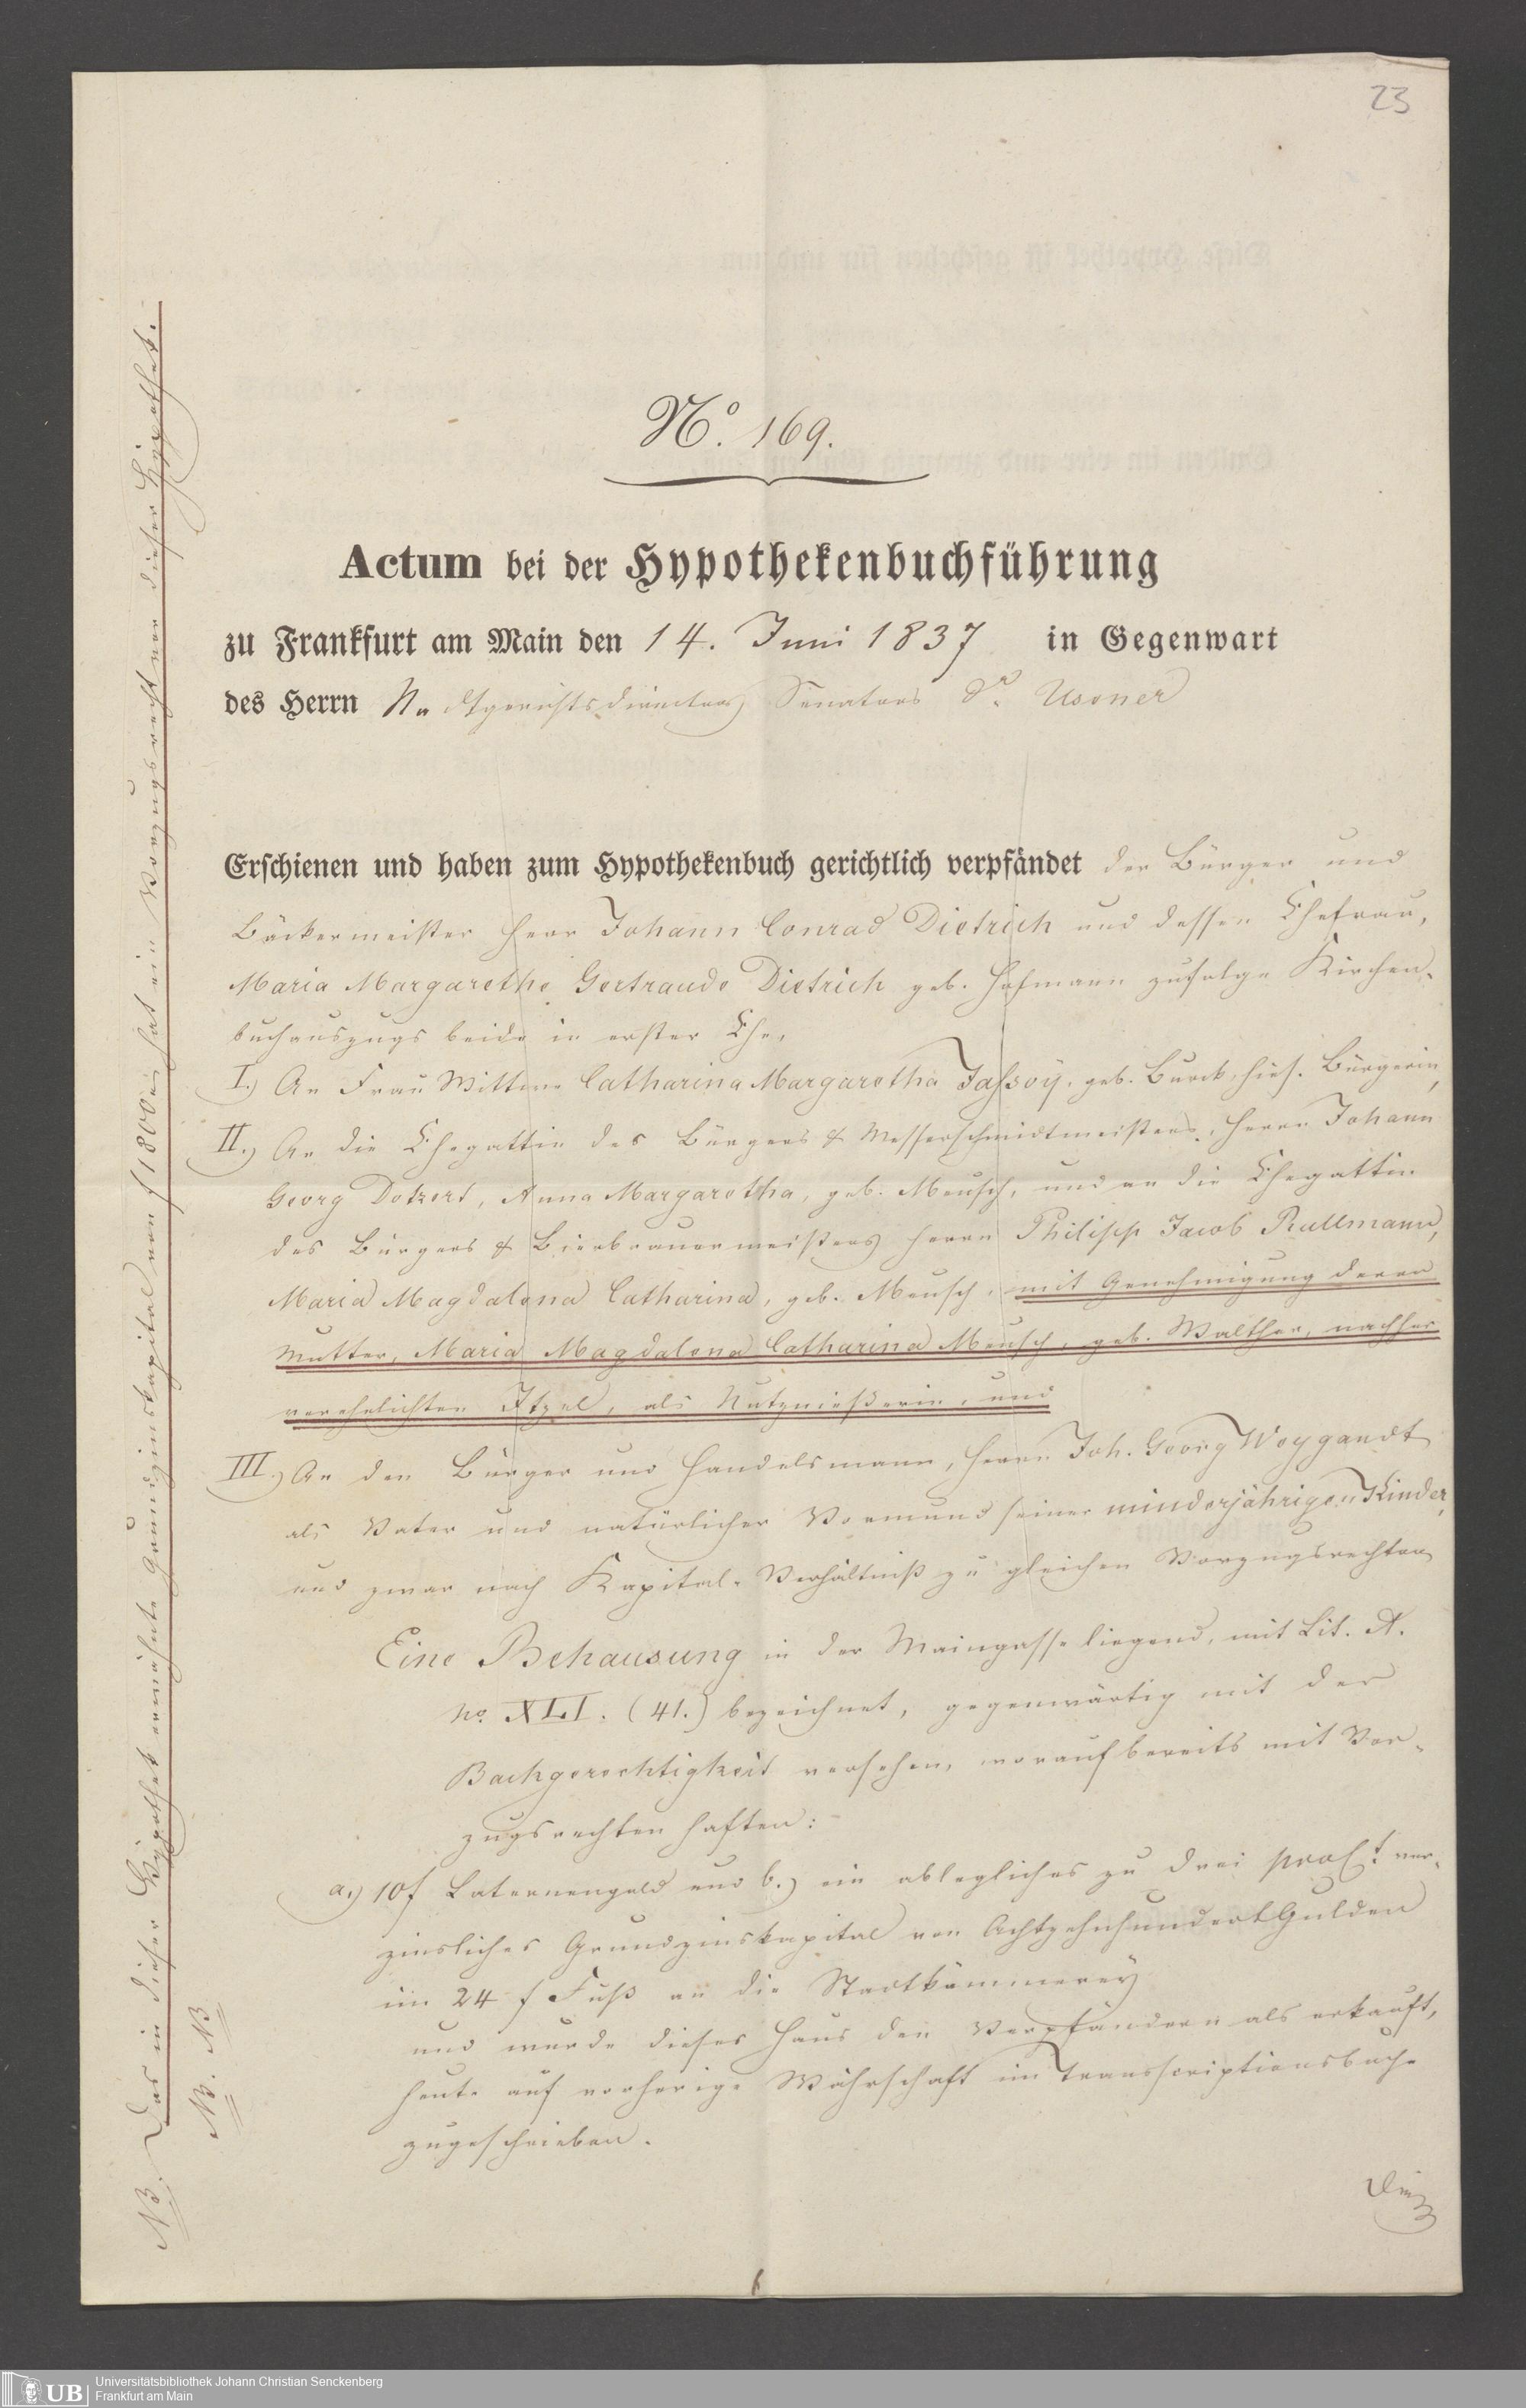 23
No. 169.
Actum bei der Hypothekenbuchführung
zu Frankfurt am Main den 14. Juni 1837 in Gegenwart
des Herrn Stadtgerichtsdirectors Senators Dr. Usener
Erschienen und haben zum Hypothekenbuch gerichtlich verpfändet der Bürger und
Bäckermeister Herr Johann Conrad Dietrich und dessen Ehefrau,
Maria Margarethe Gertraude Dietrich geb. Hofmann zufolge Kirchen-
buchauszugs beide in erster Ehe,
I.) An Frau Wittwe Catharina Margaretha Jassoy, geb. Burck, hies. Bürgerin,
II.) An die Ehegattin des Bürgers & Messerschmidtmeisters, Herrn Johann
Georg Dotzert, Anna Margaretha, geb. Meusch, und an die Ehegattin
des Bürgers & Bierbrauermeisters Herrn Philipp Jacob Rullmann,
Maria Magdalena Catharina, geb. Meusch, mit Genehmigung deren
Mutter, Maria Magdalena Catharina Meusch, geb. Walther, nachher
verehelichten Itzel, als Nutznießerin, und
III.) An den Bürger und Handelsmann, Herrn Joh. Georg Weygandt
als Vater und natürlicher Vormund seiner minderjährigen Kinder,
und zwar nach Kapital-Verhältniß zu gleichen Vorzugsrechten
Eine Behausung in der Maingasse liegend, mit Lit. A.
no. XLI. (41.) bezeichnet, gegenwärtig mit der
Backgerechtigkeit versehen, worauf bereits mit Vor-
zugsrechten haften:
a.) 10 f Laternengeld und b.) ein ablegliches zu drei proCt. ver-
zinsliches Grundzinskapital von Achtzehnhundert Gulden
im 24 f Fuß an die Stadtkämmerey
und wurde dieses Haus den Verpfändern als erkauft,
heute auf vorherige Währschaft im Transscriptionsbuche
zugeschrieben.
NB. Das in dieser Hypothek erwähnte Grundzinskapital von f 1800 hat ein Vorzugsrecht vor dieser Hypothek.
NB. NB
UB
Universitätsbibliothek Johann Christian Senckenberg
Frankfurt am Main